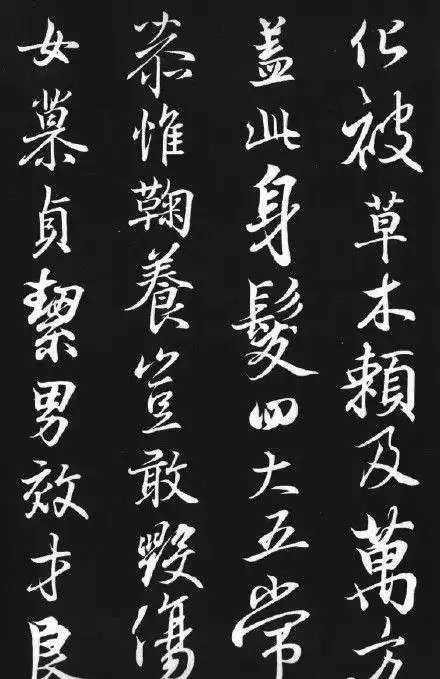 化被草木賴及萬方
蓋此身髮四大五常
恭惟鞠養豈敢毀傷
女慕貞絜男效才良